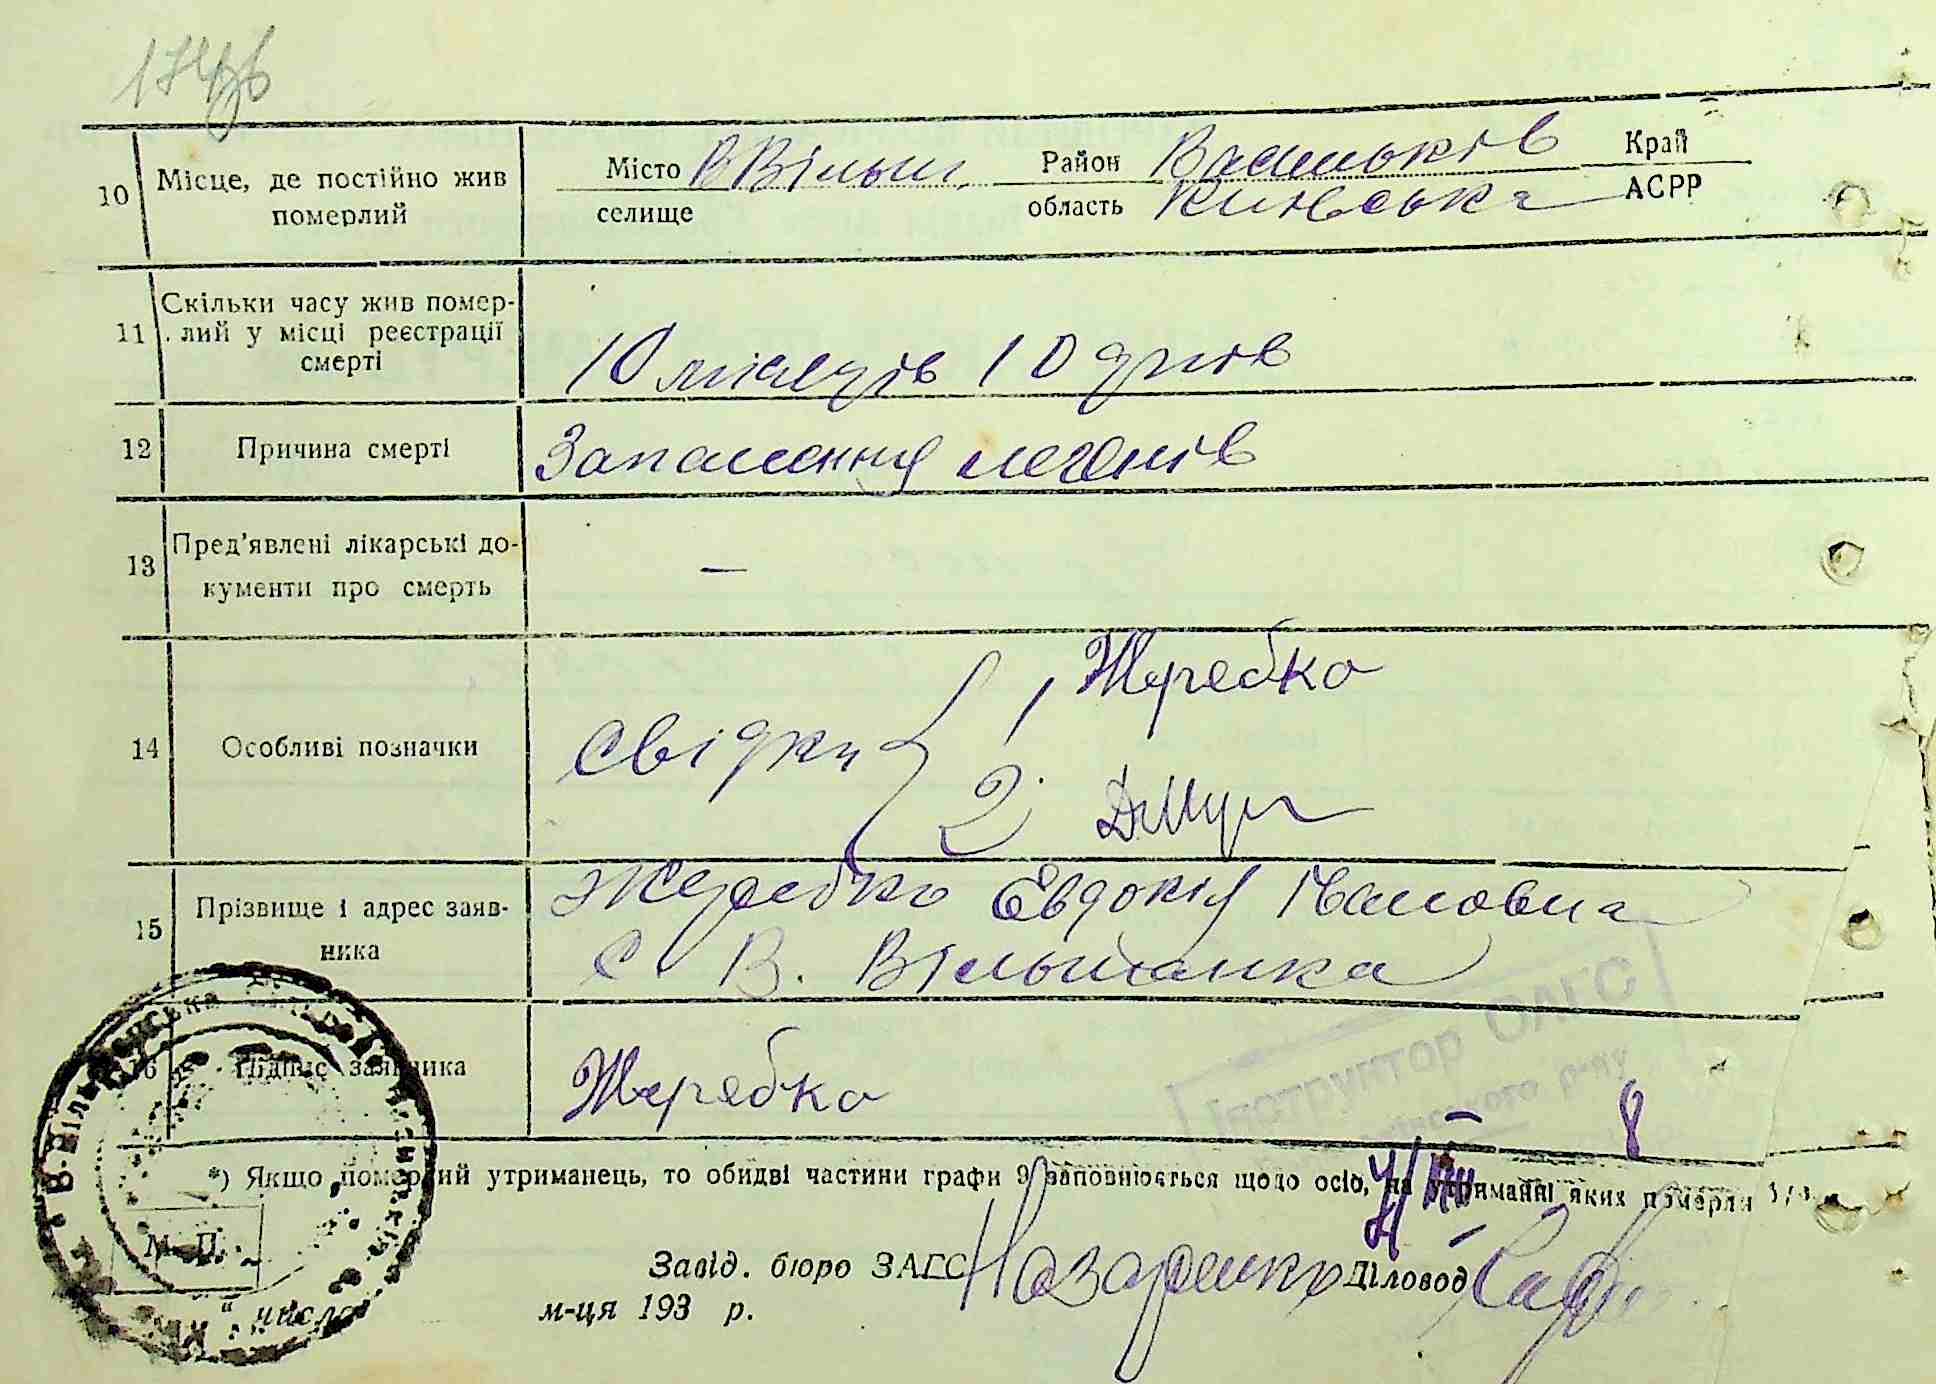 10 Місце, де постійно жив померлий
Місто В Вільш. Район Васильків Край
селище область Київська АСРР
11 Скільки часу жив помер-
лий у місці реєстрації
смерті
10 місяців 10 днів
12 Причина смерті Запалення легенів
13 Пред'явлені лікарські до-
кументи про смерть
—
14 Особливі позначки
свідки { 1 Жеребко
2
15 Прізвище і адрес заяв-
ника
Жеребко Евдокія Івановна
с. В. Вільшанка
16 Підпис заявника Жеребко
Інструктор ОАГС
*) Якщо померлий утриманець, то обидві частини графи 9 заповнюється щодо осіб, на утриманні яких померли
М. П.
Завід. бюро ЗАГС Назаренко Діловод
" числа м-ця 193 р.